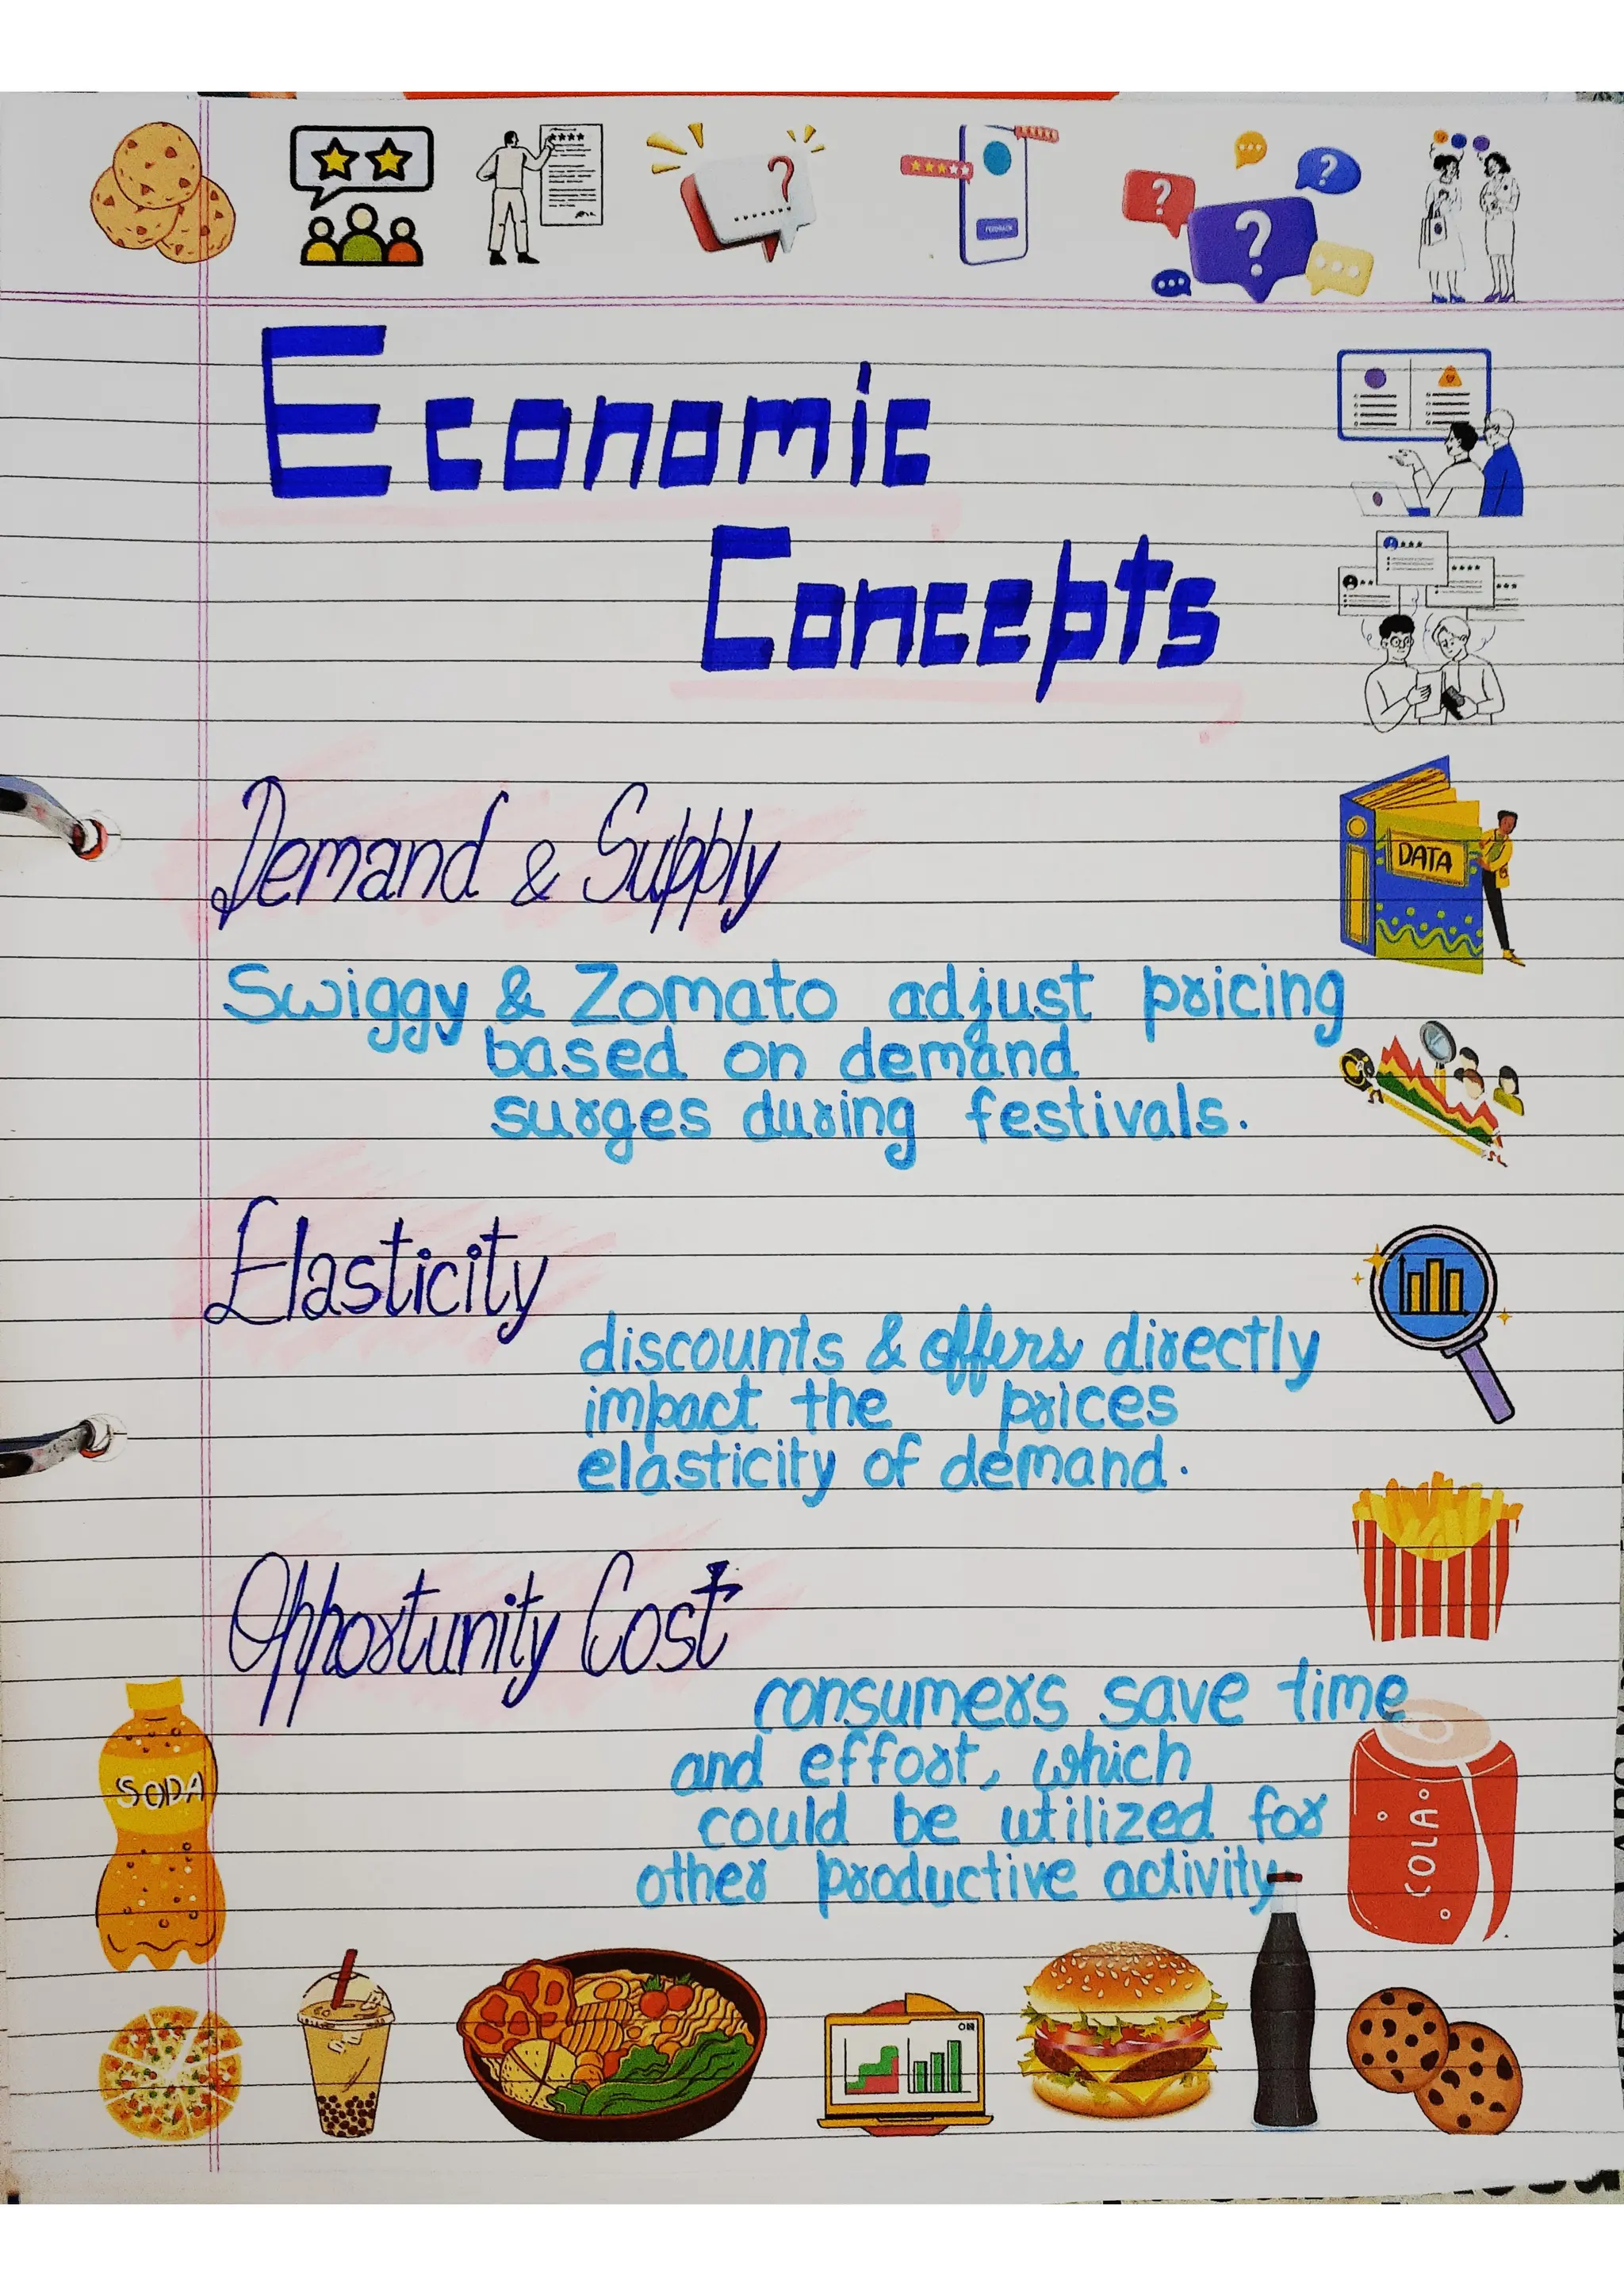 FEEDBACK
Economic
Concepts
Demand & Supply
DATA
Swiggy & Zomato adjust pricing
based on demand
surges during festivals.
Elasticity
discounts & offers directly
impact the prices
elasticity of demand.
Opportunity Cost
consumers save time
and effort, which
could be utilized for
other productive activity.
SODA
COLA